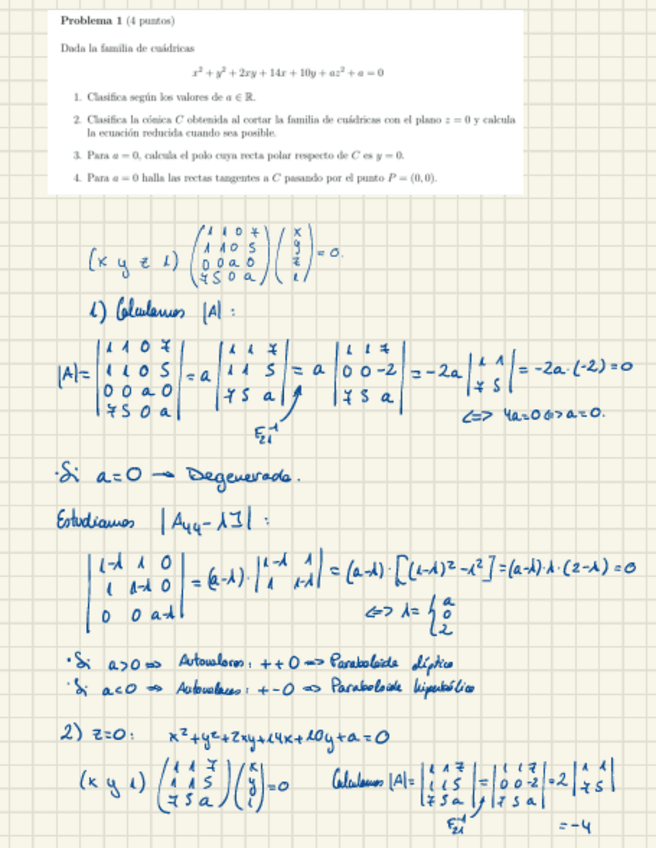 Problema 1 (4 puntos)
Dada la familia de cuádricas
x² + y² + 2xy + 14x + 10y + az² + a = 0
1. Clasifica según los valores de a ∈ ℝ.
2. Clasifica la cónica C obtenida al cortar la familia de cuádricas con el plano z = 0 y calcula
la ecuación reducida cuando sea posible.
3. Para a = 0, calcula el polo cuya recta polar respecto de C es y = 0.
4. Para a = 0 halla las rectas tangentes a C pasando por el punto P = (0, 0).
(x y z 1) (1 1 0 7; 1 1 0 5; 0 0 a 0; 7 5 0 a) (x; y; z; 1) = 0.
1) Calculamos |A| :
|A| = |1 1 0 7; 1 1 0 5; 0 0 a 0; 7 5 0 a| = a |1 1 7; 1 1 5; 7 5 a| = a |1 1 7; 0 0 -2; 7 5 a| = -2a |1 1; 7 5| = -2a·(-2) = 0
F₂₁⁻¹
<=> 4a=0 <=> a=0.
· Si a=0 → Degenerada.
Estudiamos |A₄₄ - λI| :
|1-λ 1 0; 1 1-λ 0; 0 0 a-λ| = (a-λ)·|1-λ 1; 1 1-λ| = (a-λ)·[(1-λ)² - 1²] = (a-λ)·λ·(2-λ) = 0
<=> λ = {a; 0; 2
· Si a>0 => Autovalores: + + 0 => Paraboloide elíptico
· Si a<0 => Autovalores: + - 0 => Paraboloide hiperbólico
2) z=0: x²+y²+2xy+14x+10y+a=0
(x y 1) (1 1 7; 1 1 5; 7 5 a) (x; y; 1) = 0 Calculamos |A| = |1 1 7; 1 1 5; 7 5 a| = |1 1 7; 0 0 -2; 7 5 a| = 2 |1 1; 7 5|
F₂₁⁻¹
= -4